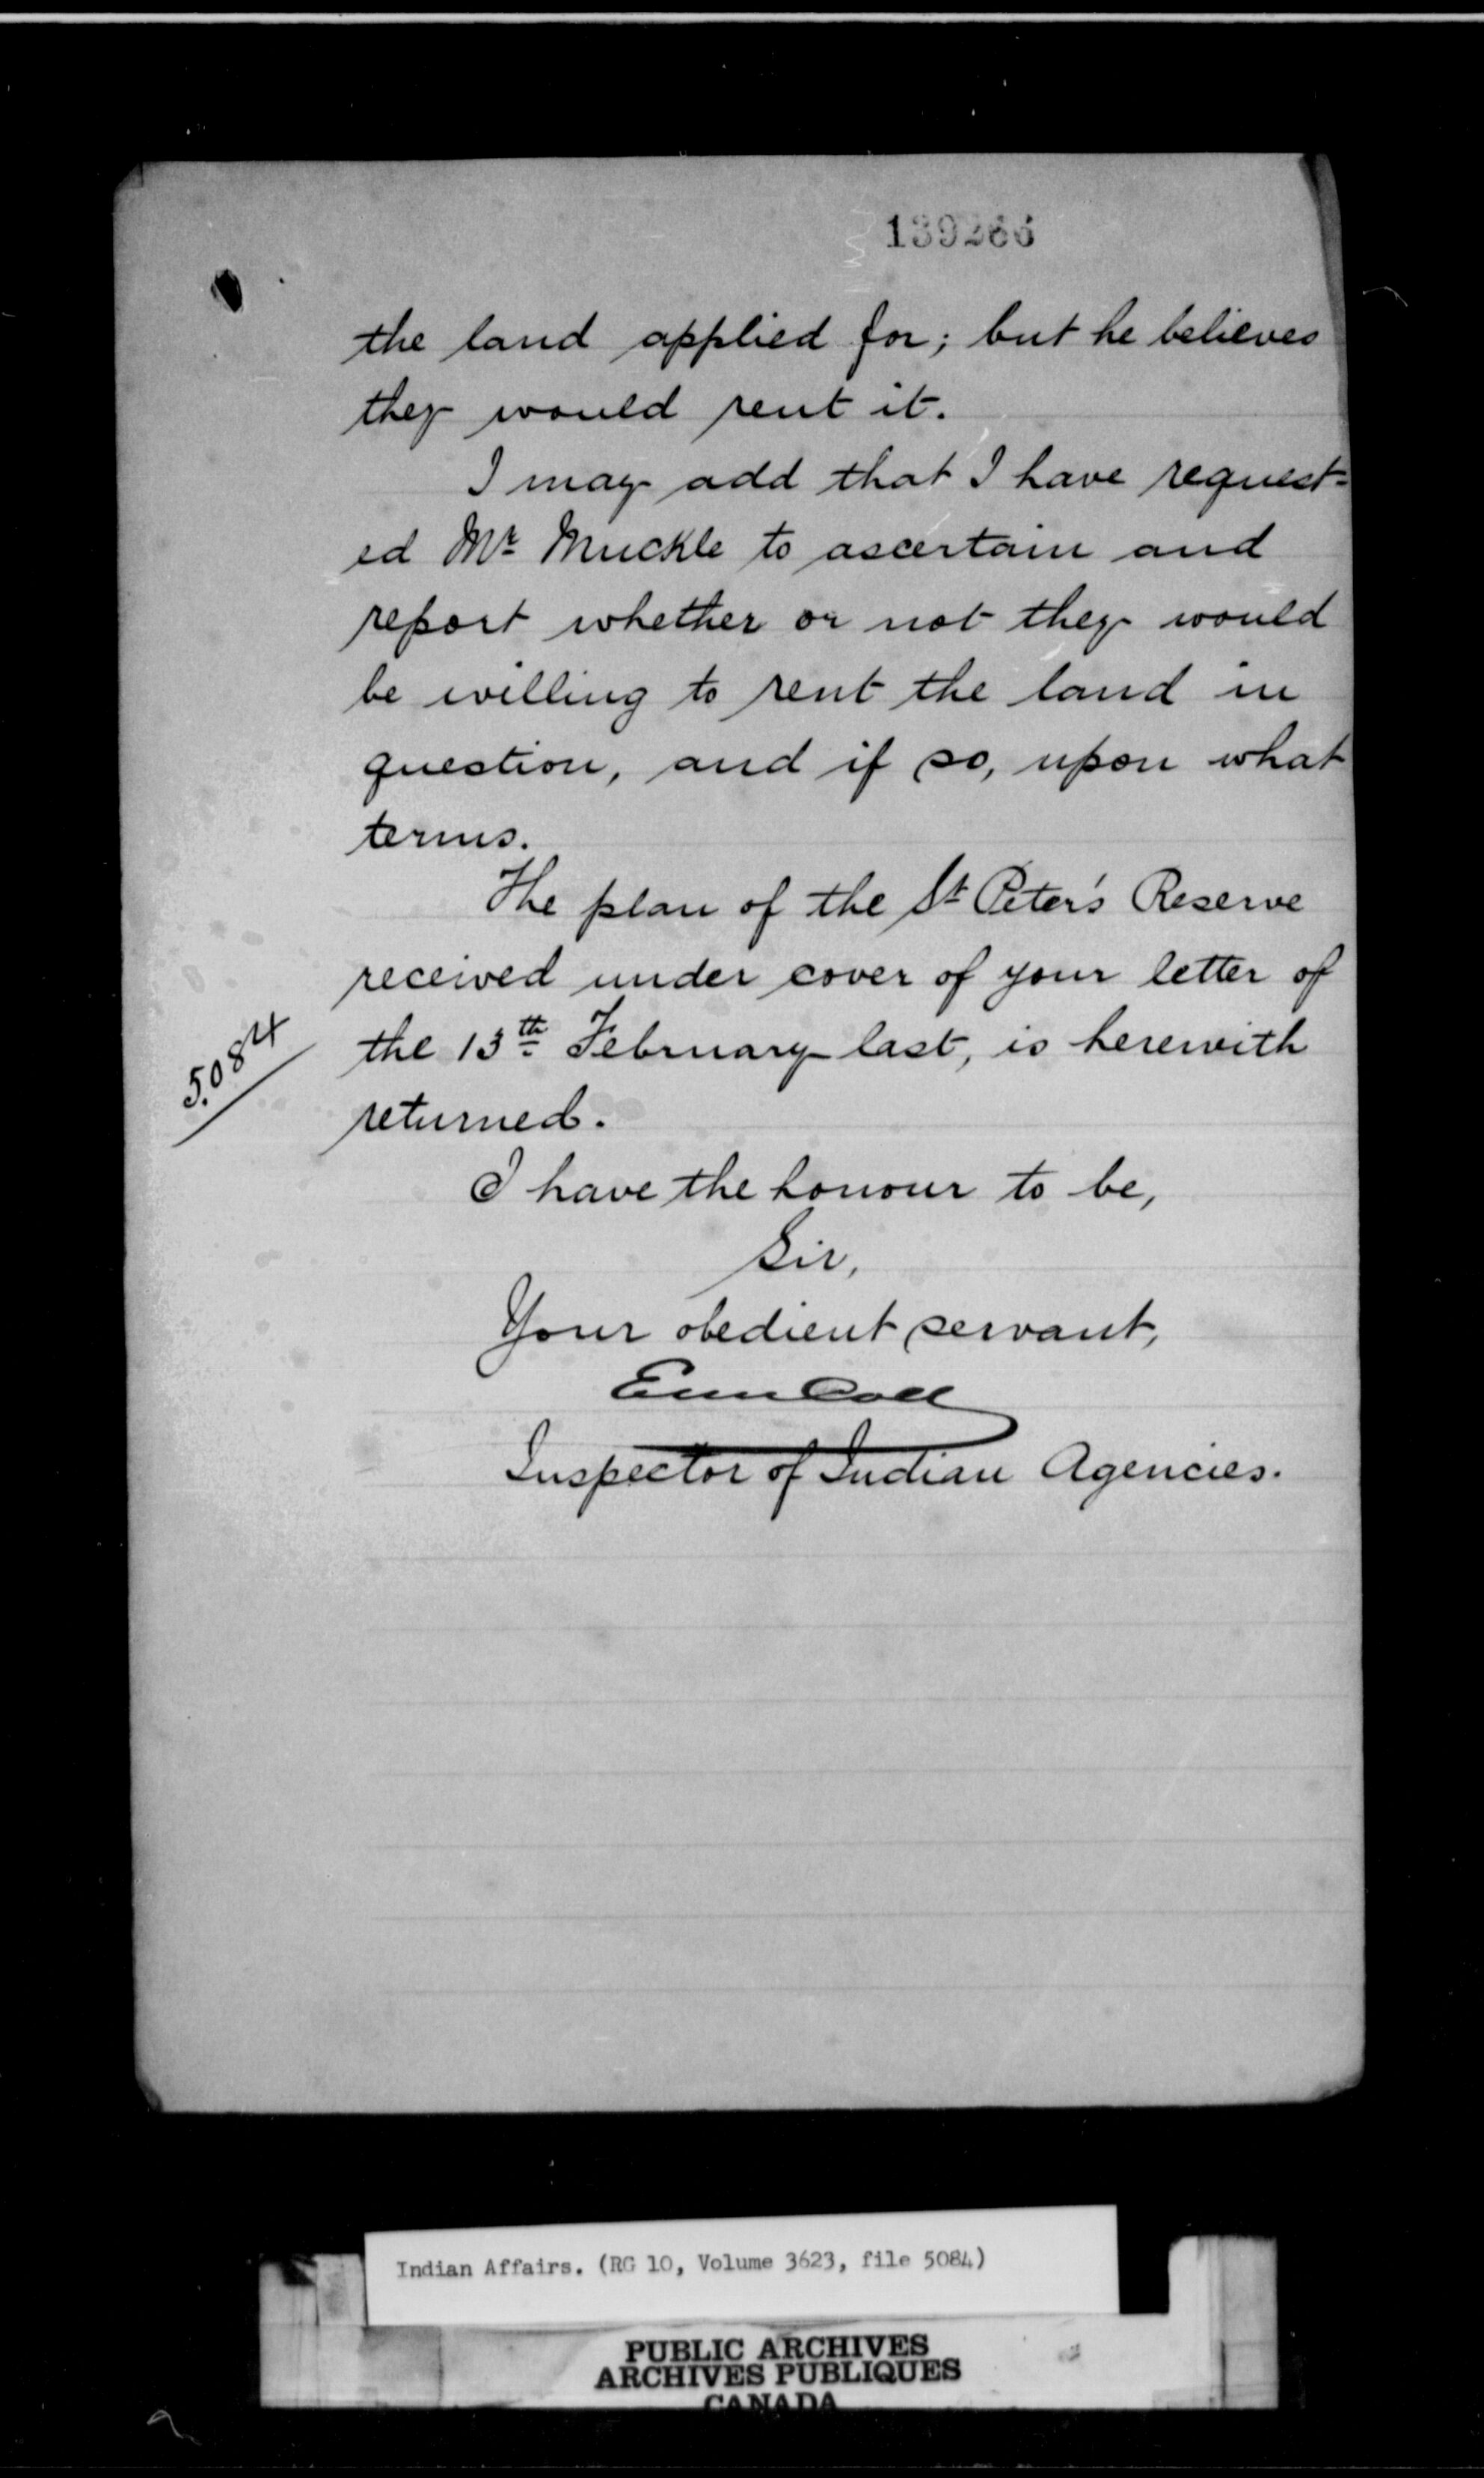 139266
the land applied for; but he believes
they would rent it.
I may add that I have request-
ed Mr Muckle to ascertain and
report whether or not they would
be willing to rent the land in
question, and if so, upon what
terms.
The plan of the St Peter's Reserve
received under cover of your letter of
the 13th February last, is herewith
5084
returned.
I have the honour to be,
Sir,
Your obedient servant,
Inspector of Indian Agencies.
Indian Affairs. (RG 10, Volume 3623, file 5084)
PUBLIC ARCHIVES
ARCHIVES PUBLIQUES
CANADA